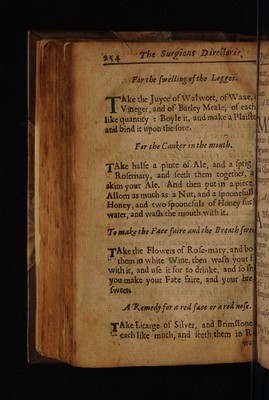 254
The Surgions Directorie,
For the swelling of the Legges.
TAke the Juyce of Walwort, of Waxe,
Vineger, and of Barley Meale, of each
like quantity : Boyle it, and make a Plaiste
and bind it upon the sore.
For the Canker in the mouth.
TAke halfe a pinte of Ale, and a sprig
Rosemary, and seeth them together, a
skim your Ale. And then put in a piece
Allom as much as a Nut, and a spoonefull
Honey, and two spoonefuls of Honey suc
water, and wash the mouth with it.
To make the Face faire and the Breath swe
TAke the Flowers of Rose-mary, and bo
them in white Wine, then wash your f
with it, and use it for to drinke, and so sh
you make your Face faire, and your bre
sweet.
A Remedy for a red face or a red nose.
TAke Litarge of Silver, and Brimstone
each like much, and seeth them in R